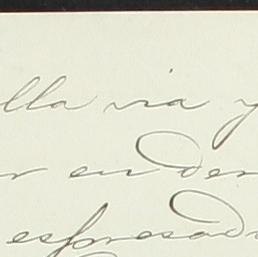 lla via y
r en der
espresad